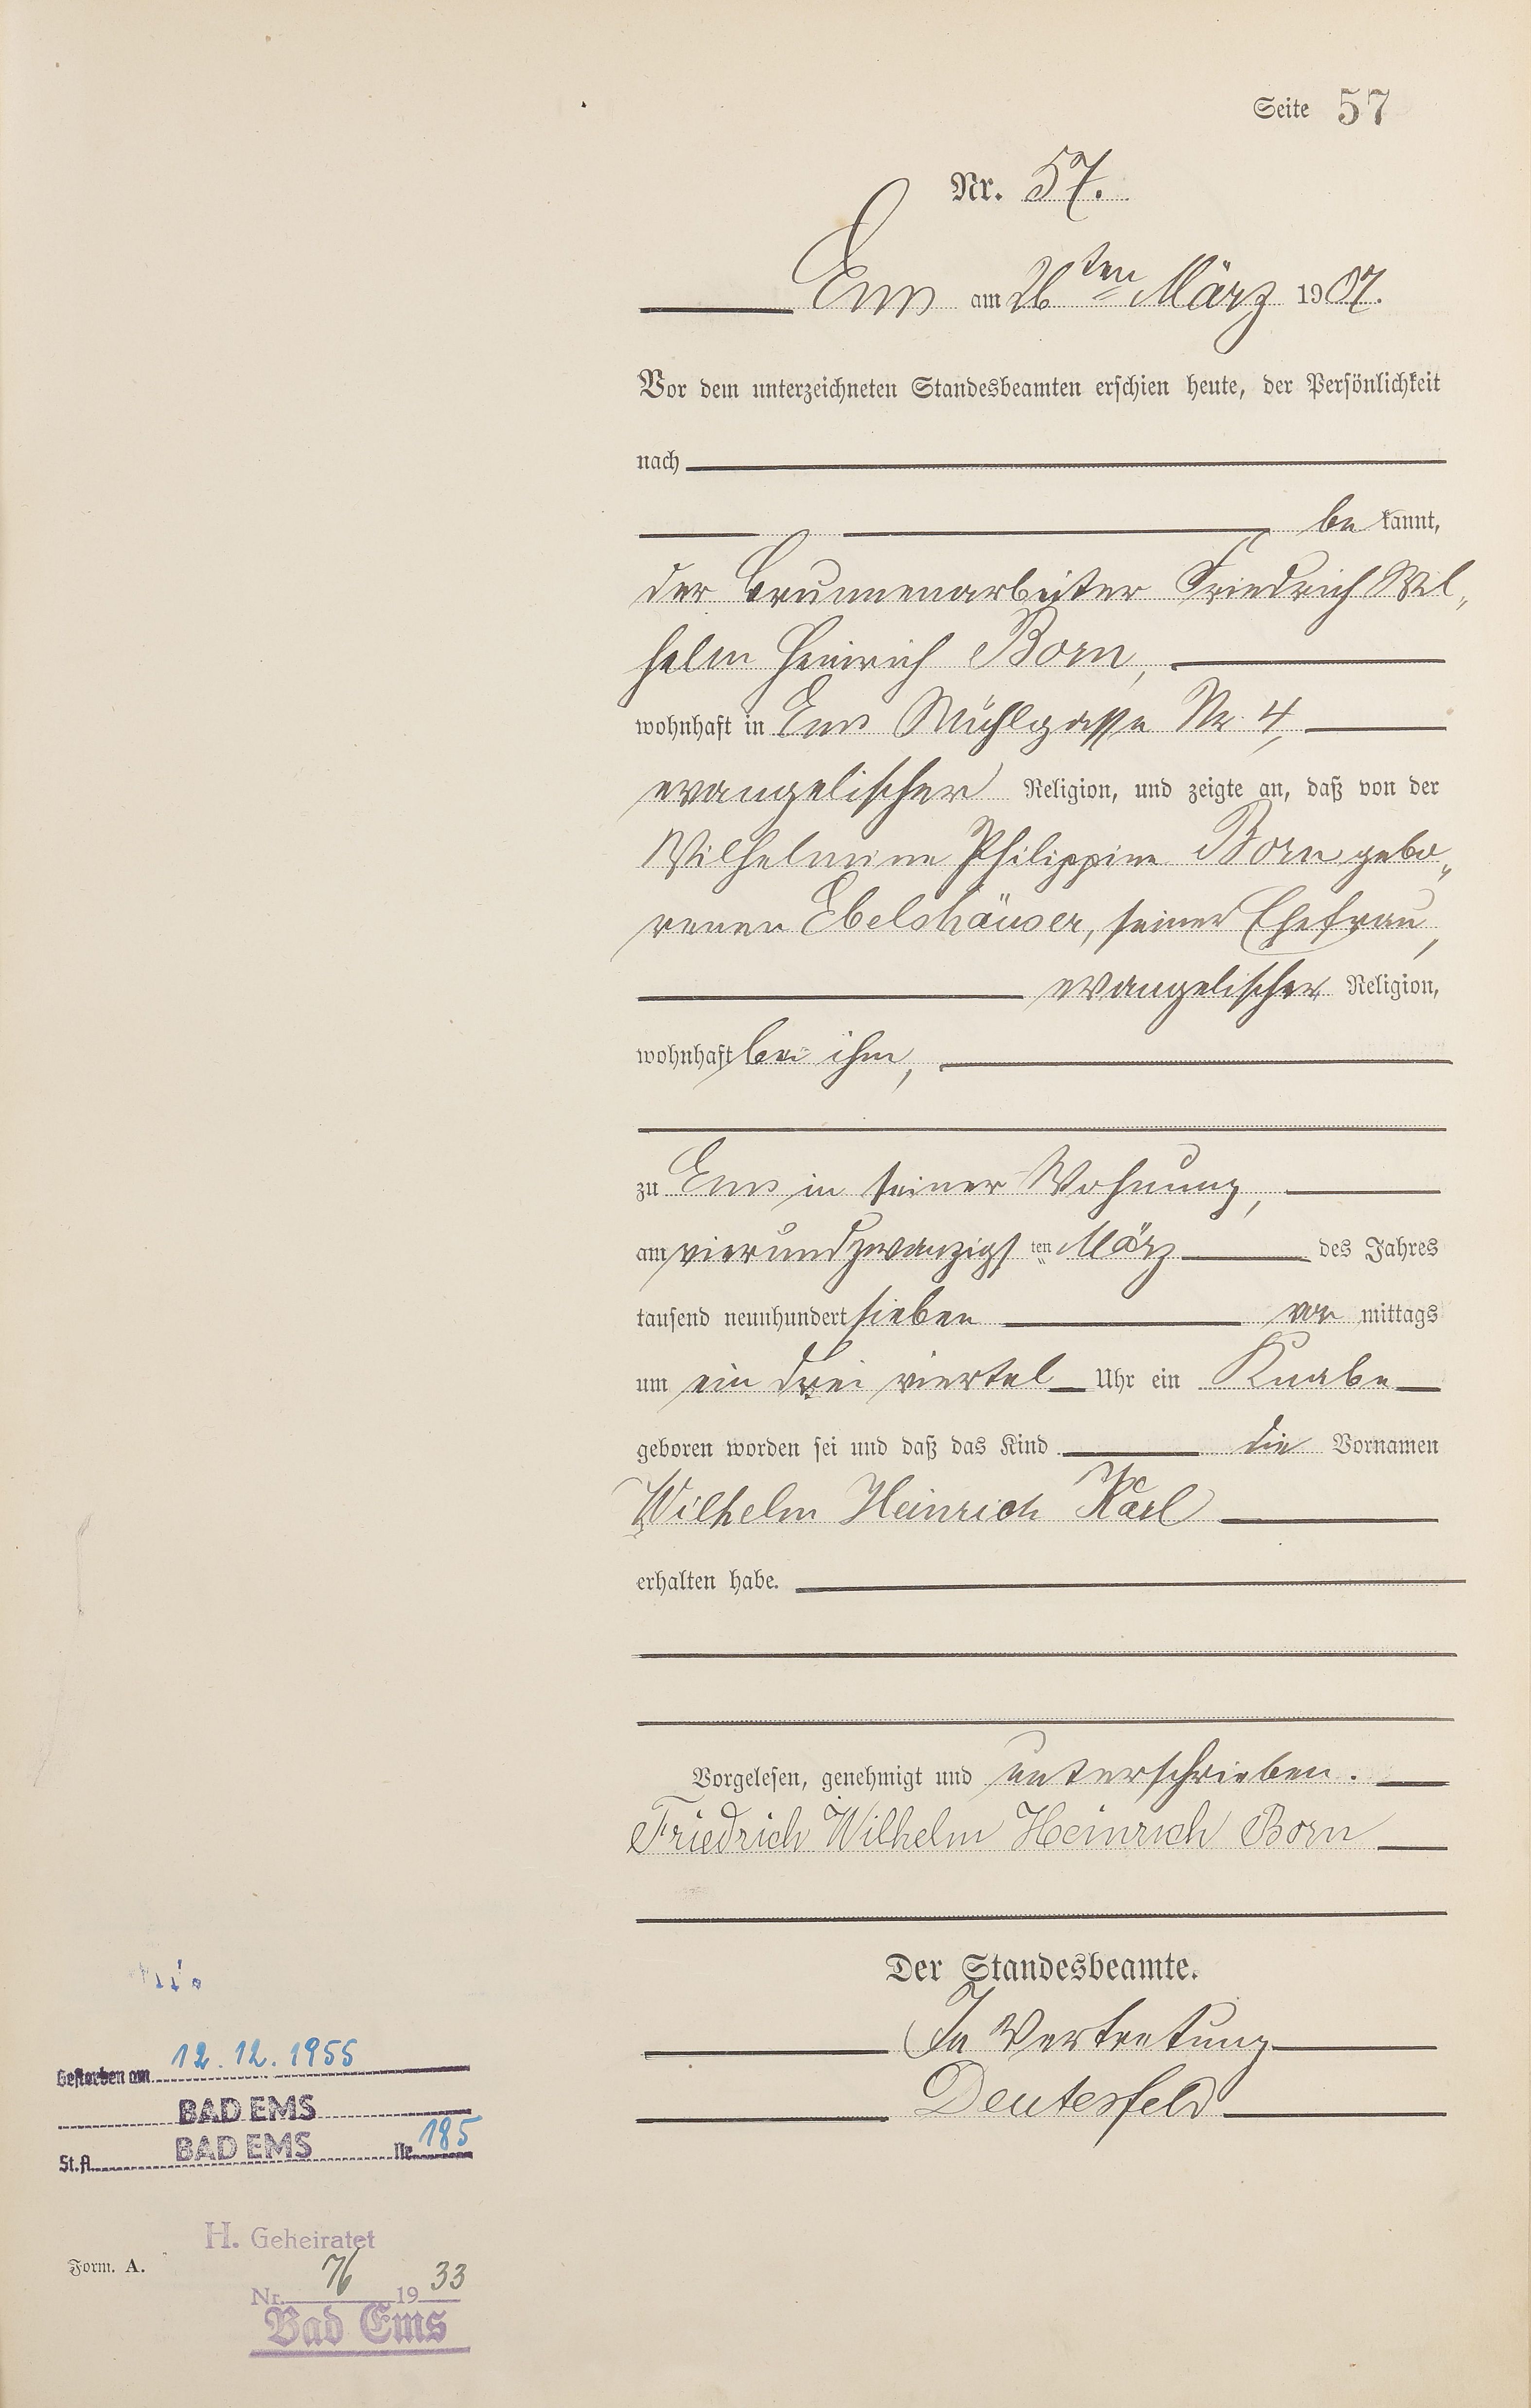 Seite 57
Nr. 57.
Ems am 26ten März 1907.
Vor dem unterzeichneten Standesbeamten erschien heute, der Persönlichkeit
nach
be kannt,
der Brunnenarbeiter Friedrich Wil„
helm Heinrich Born,
wohnhaft in Ems Mühlgasse Nr. 4,
evangelischer Religion, und zeigte an, daß von der
Wilhelmine Philippine Born gebo„
renen Ebelshäuser, seiner Ehefrau,
evangelischer Religion,
wohnhaft bei ihm,
zu Ems in seiner Wohnung,
am vierundzwanzigsten März des Jahres
tausend neunhundert sieben vor mittags
um ein drei viertel Uhr ein Knabe
geboren worden sei und daß das Kind die Vornamen
Wilhelm Heinrich Karl
erhalten habe.
Vorgelesen, genehmigt und unterschrieben.
Friedrich Wilhelm Heinrich Born
Der Standesbeamte.
In Vertretung
Deutesfeld
Gestorben am 12.12.1955
BAD EMS
St.A. BAD EMS Nr. 185
H. Geheiratet
Form. A.
Nr. 76 1933
Bad Ems